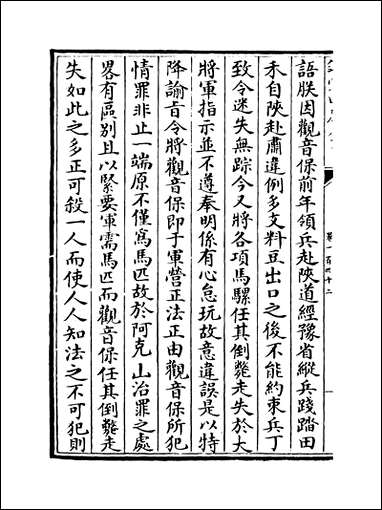 語朕因觀音保前年領兵赴陜道經豫省縱兵踐踏田
禾自陜赴肅違例多支料豆出口之後不能約束兵丁
致令迷失無踪今又將各項馬騾任其倒斃走失於大
將軍指示並不遵奉明係有心怠玩故意違誤是以特
降諭旨令將觀音保即于軍營正法正由觀音保所犯
情罪非止一端原不僅為馬匹故於阿克山治罪之處
畧有區别且以緊要軍需馬匹而觀音保任其倒斃走
失如此之多正可殺一人而使人人知法之不可犯則